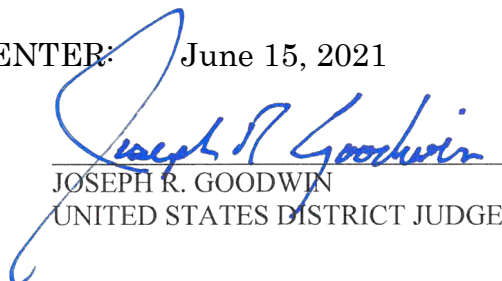 ENTER: June 15, 2021
Joseph R Goodwin
JOSEPH R. GOODWIN
UNITED STATES DISTRICT JUDGE